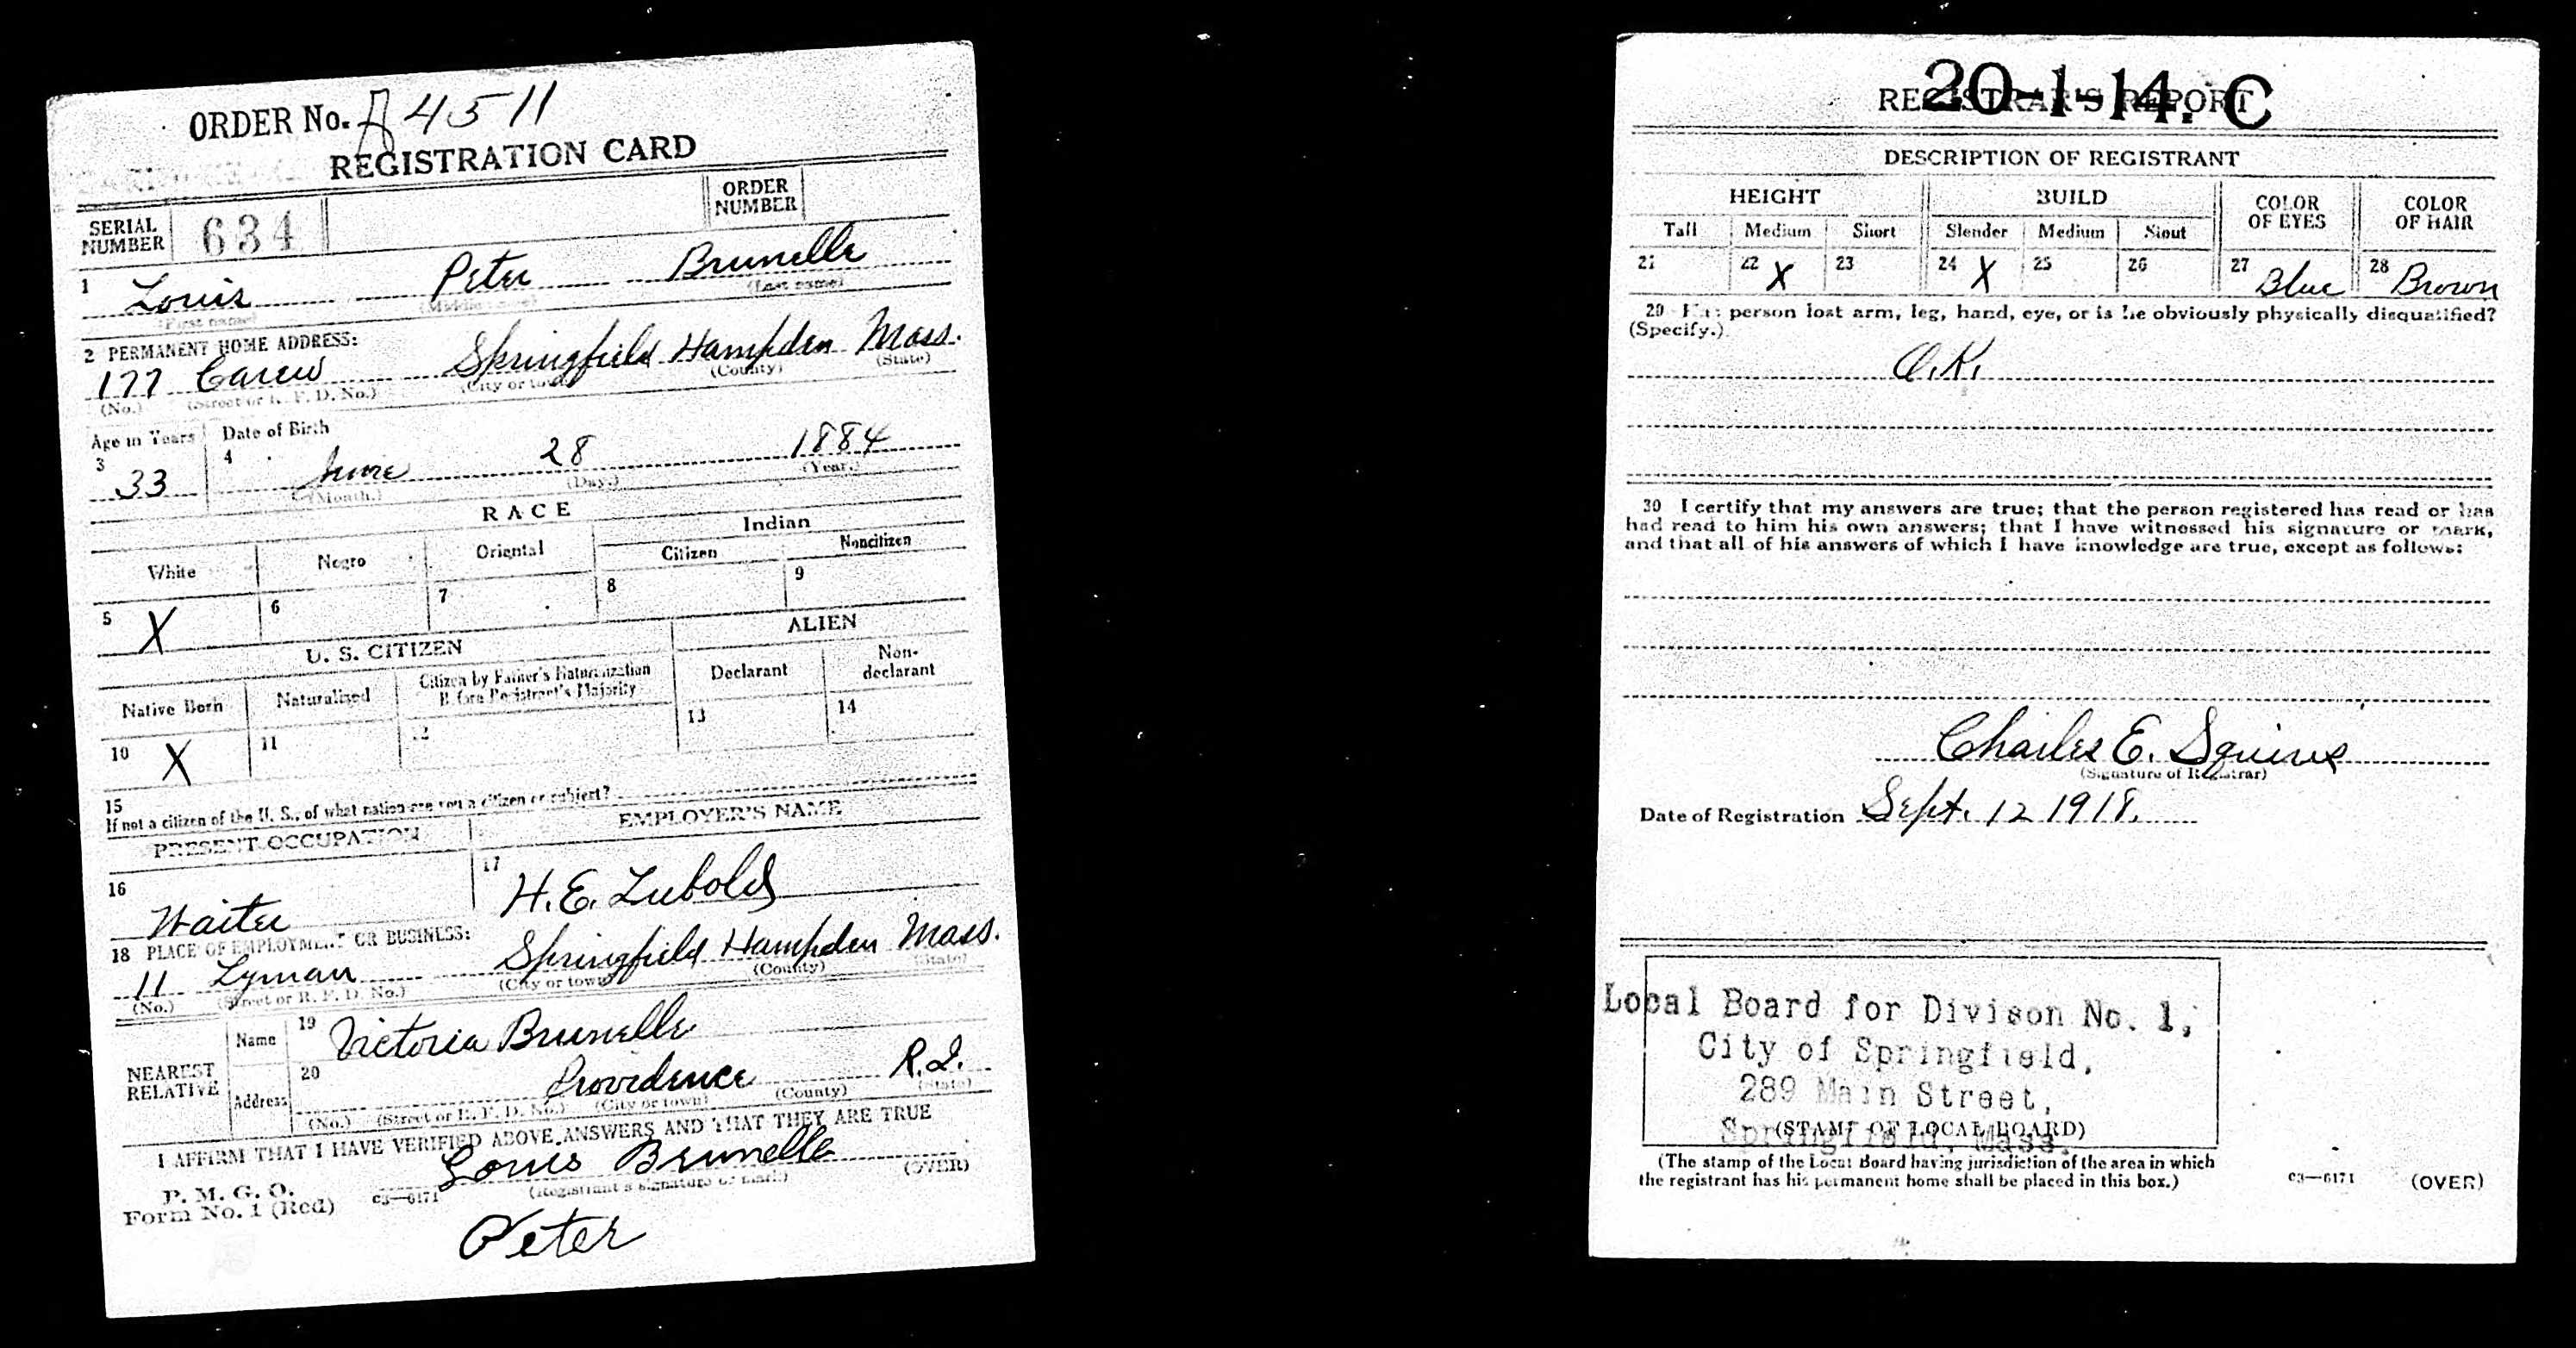 ORDER No. A 4511
REGISTRATION CARD
SERIAL NUMBER 634 ORDER NUMBER
1 Louis Peter Brunelle
(First name) (Middle name) (Last name)
2 PERMANENT HOME ADDRESS:
177 Carew Springfield Hampden Mass.
(No.) (Street or R. F. D. No.) (City or town) (County) (State)
Age in Years Date of Birth
3 33 4 June 28 1884
(Month.) (Day.) (Year.)
RACE
White Negro Oriental Indian
Citizen Noncitizen
5 X 6 7 8 9
U. S. CITIZEN ALIEN
Native Born Naturalized Citizen by Father's Naturalization Before Registrant's Majority Declarant Non-declarant
10 X 11 12 13 14
15
If not a citizen of the U. S., of what nation are you a citizen or subject?
PRESENT OCCUPATION EMPLOYER'S NAME
16 Waiter 17 H. E. Lubold
18 PLACE OF EMPLOYMENT OR BUSINESS:
11 Lyman Springfield Hampden Mass.
(No.) (Street or R. F. D. No.) (City or town) (County) (State)
NEAREST RELATIVE Name 19 Victoria Brunelle
Address 20 Providence R.I.
(No.) (Street or R. F. D. No.) (City or town) (County) (State)
I AFFIRM THAT I HAVE VERIFIED ABOVE ANSWERS AND THAT THEY ARE TRUE
P. M. G. O.
Form No. 1 (Red) c3—6171 Louis Brunelle (OVER)
(Registrant's signature or mark)
Peter
REGISTRAR'S REPORT
20-1-14. C
DESCRIPTION OF REGISTRANT
HEIGHT BUILD COLOR OF EYES COLOR OF HAIR
Tall Medium Short Slender Medium Stout
21 22 X 23 24 X 25 26 27 Blue 28 Brown
29 Has person lost arm, leg, hand, eye, or is he obviously physically disqualified?
(Specify.)
O.K.
30 I certify that my answers are true; that the person registered has read or has
had read to him his own answers; that I have witnessed his signature or mark,
and that all of his answers of which I have knowledge are true, except as follows:
Charles E. Squires
(Signature of Registrar)
Date of Registration Sept. 12 1918.
Local Board for Divison No. 1,
City of Springfield,
289 Main Street,
Springfield, Mass.
(STAMP OF LOCAL BOARD)
(The stamp of the Local Board having jurisdiction of the area in which
the registrant has his permanent home shall be placed in this box.)
c3—6171 (OVER)